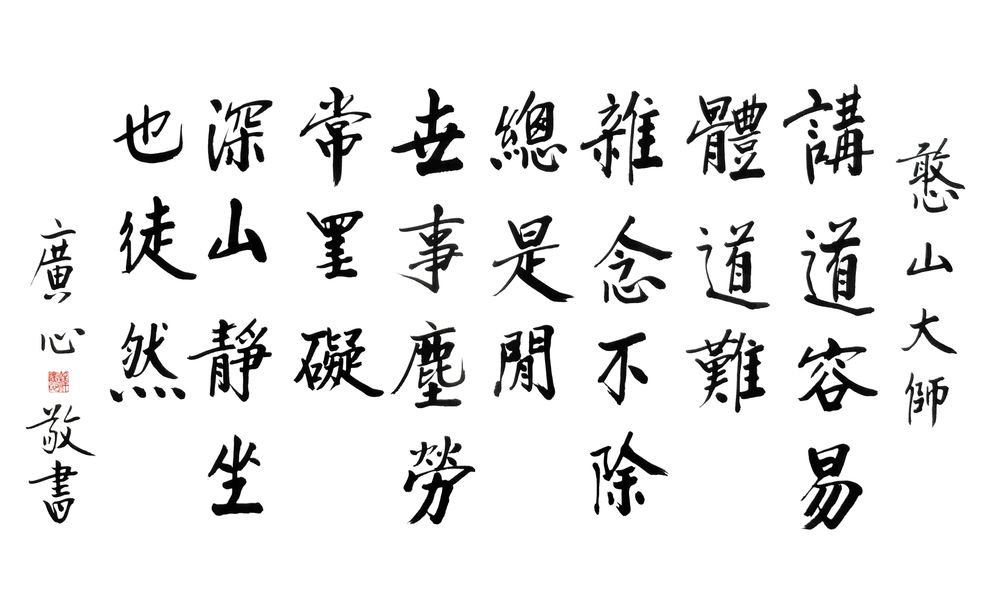 憨山大師
講道容易
體道難
雜念不除
總是閒
世事塵勞
常罣礙
深山靜坐
也徒然
廣心敬書